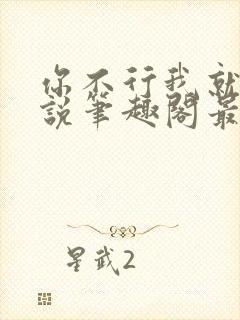 你不行我就
說筆趣閣最
星武2